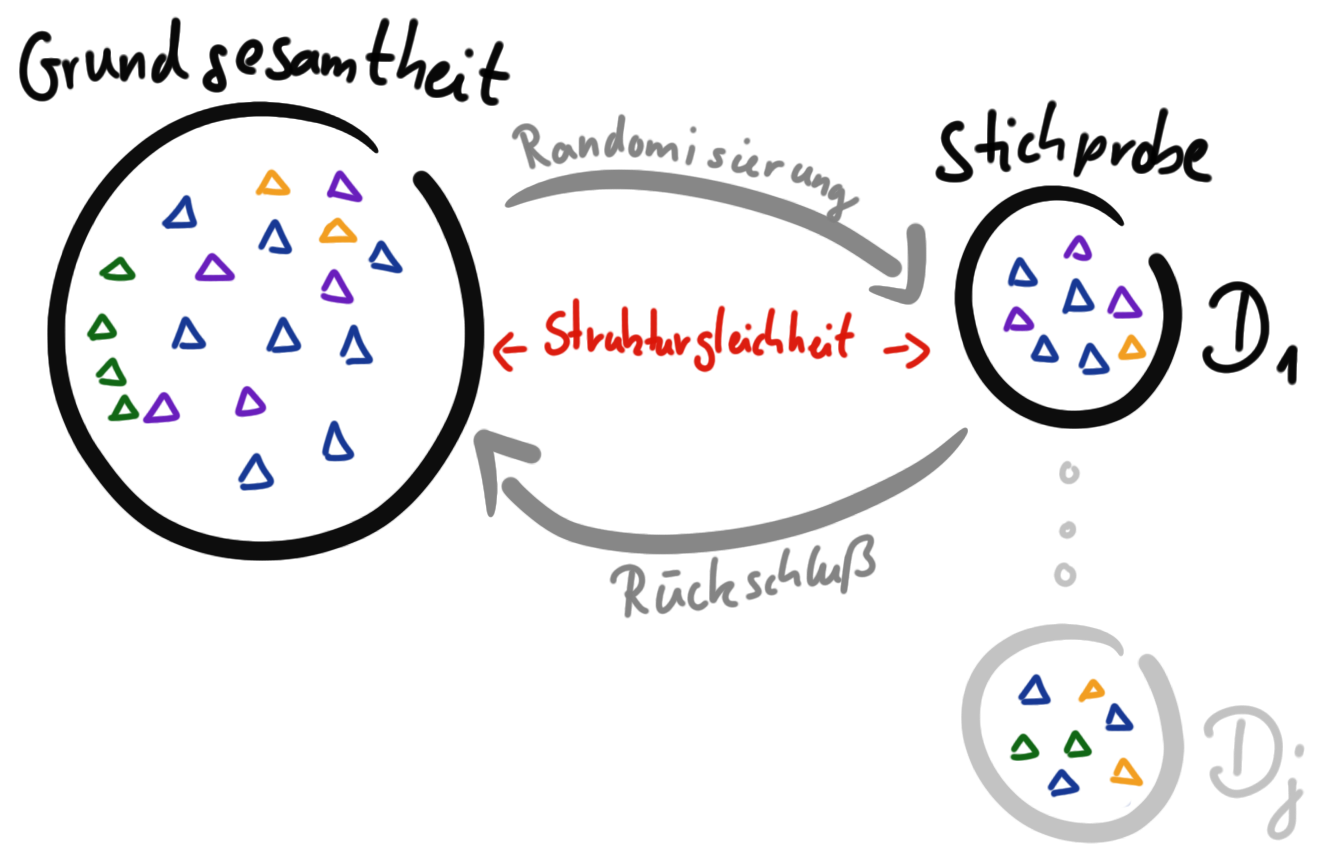 Grundgesamtheit
Randomisierung
Stichprobe
← Strukturgleichheit →
D₁
Rückschluß
Dⱼ